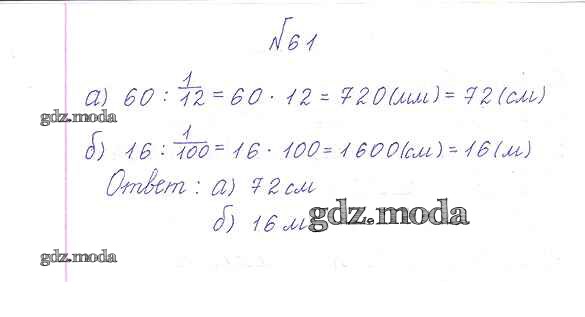 №61
а) 60 : 1/12 = 60 · 12 = 720 (мм) = 72 (см)
gdz.moda
б) 16 : 1/100 = 16 · 100 = 1600 (см) = 16 (м)
Ответ: а) 72 см
б) 16 м
gdz.moda
gdz.moda